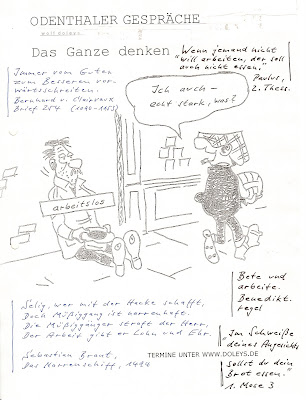 ODENTHALER GESPRÄCHE
wolf doleys
Das Ganze denken
Wenn jemand nicht
"will arbeiten, der soll
auch nicht essen."
Paulus,
2. Thess.
Immer vom Guten
zum Besseren vor-
wärtsschreiten.
Bernhard v. Clairvaux
Brief 254 (1090-1153)
Ich auch -
echt stark, was?
arbeitslos
Bete und
arbeite.
Benedikt.
regel
Selig, wer mit der Hacke schafft,
Doch Müßiggang ist narrenhaft.
Die Müßiggänger straft der Herr,
Der Arbeit gibt er Lohn und Ehr.
Sebastian Brant,
Das Narrenschiff, 1494
Im Schweiße
deines Angesichts
Sollst du dein
Brot essen."
1. Mose 3
TERMINE UNTER WWW.DOLEYS.DE